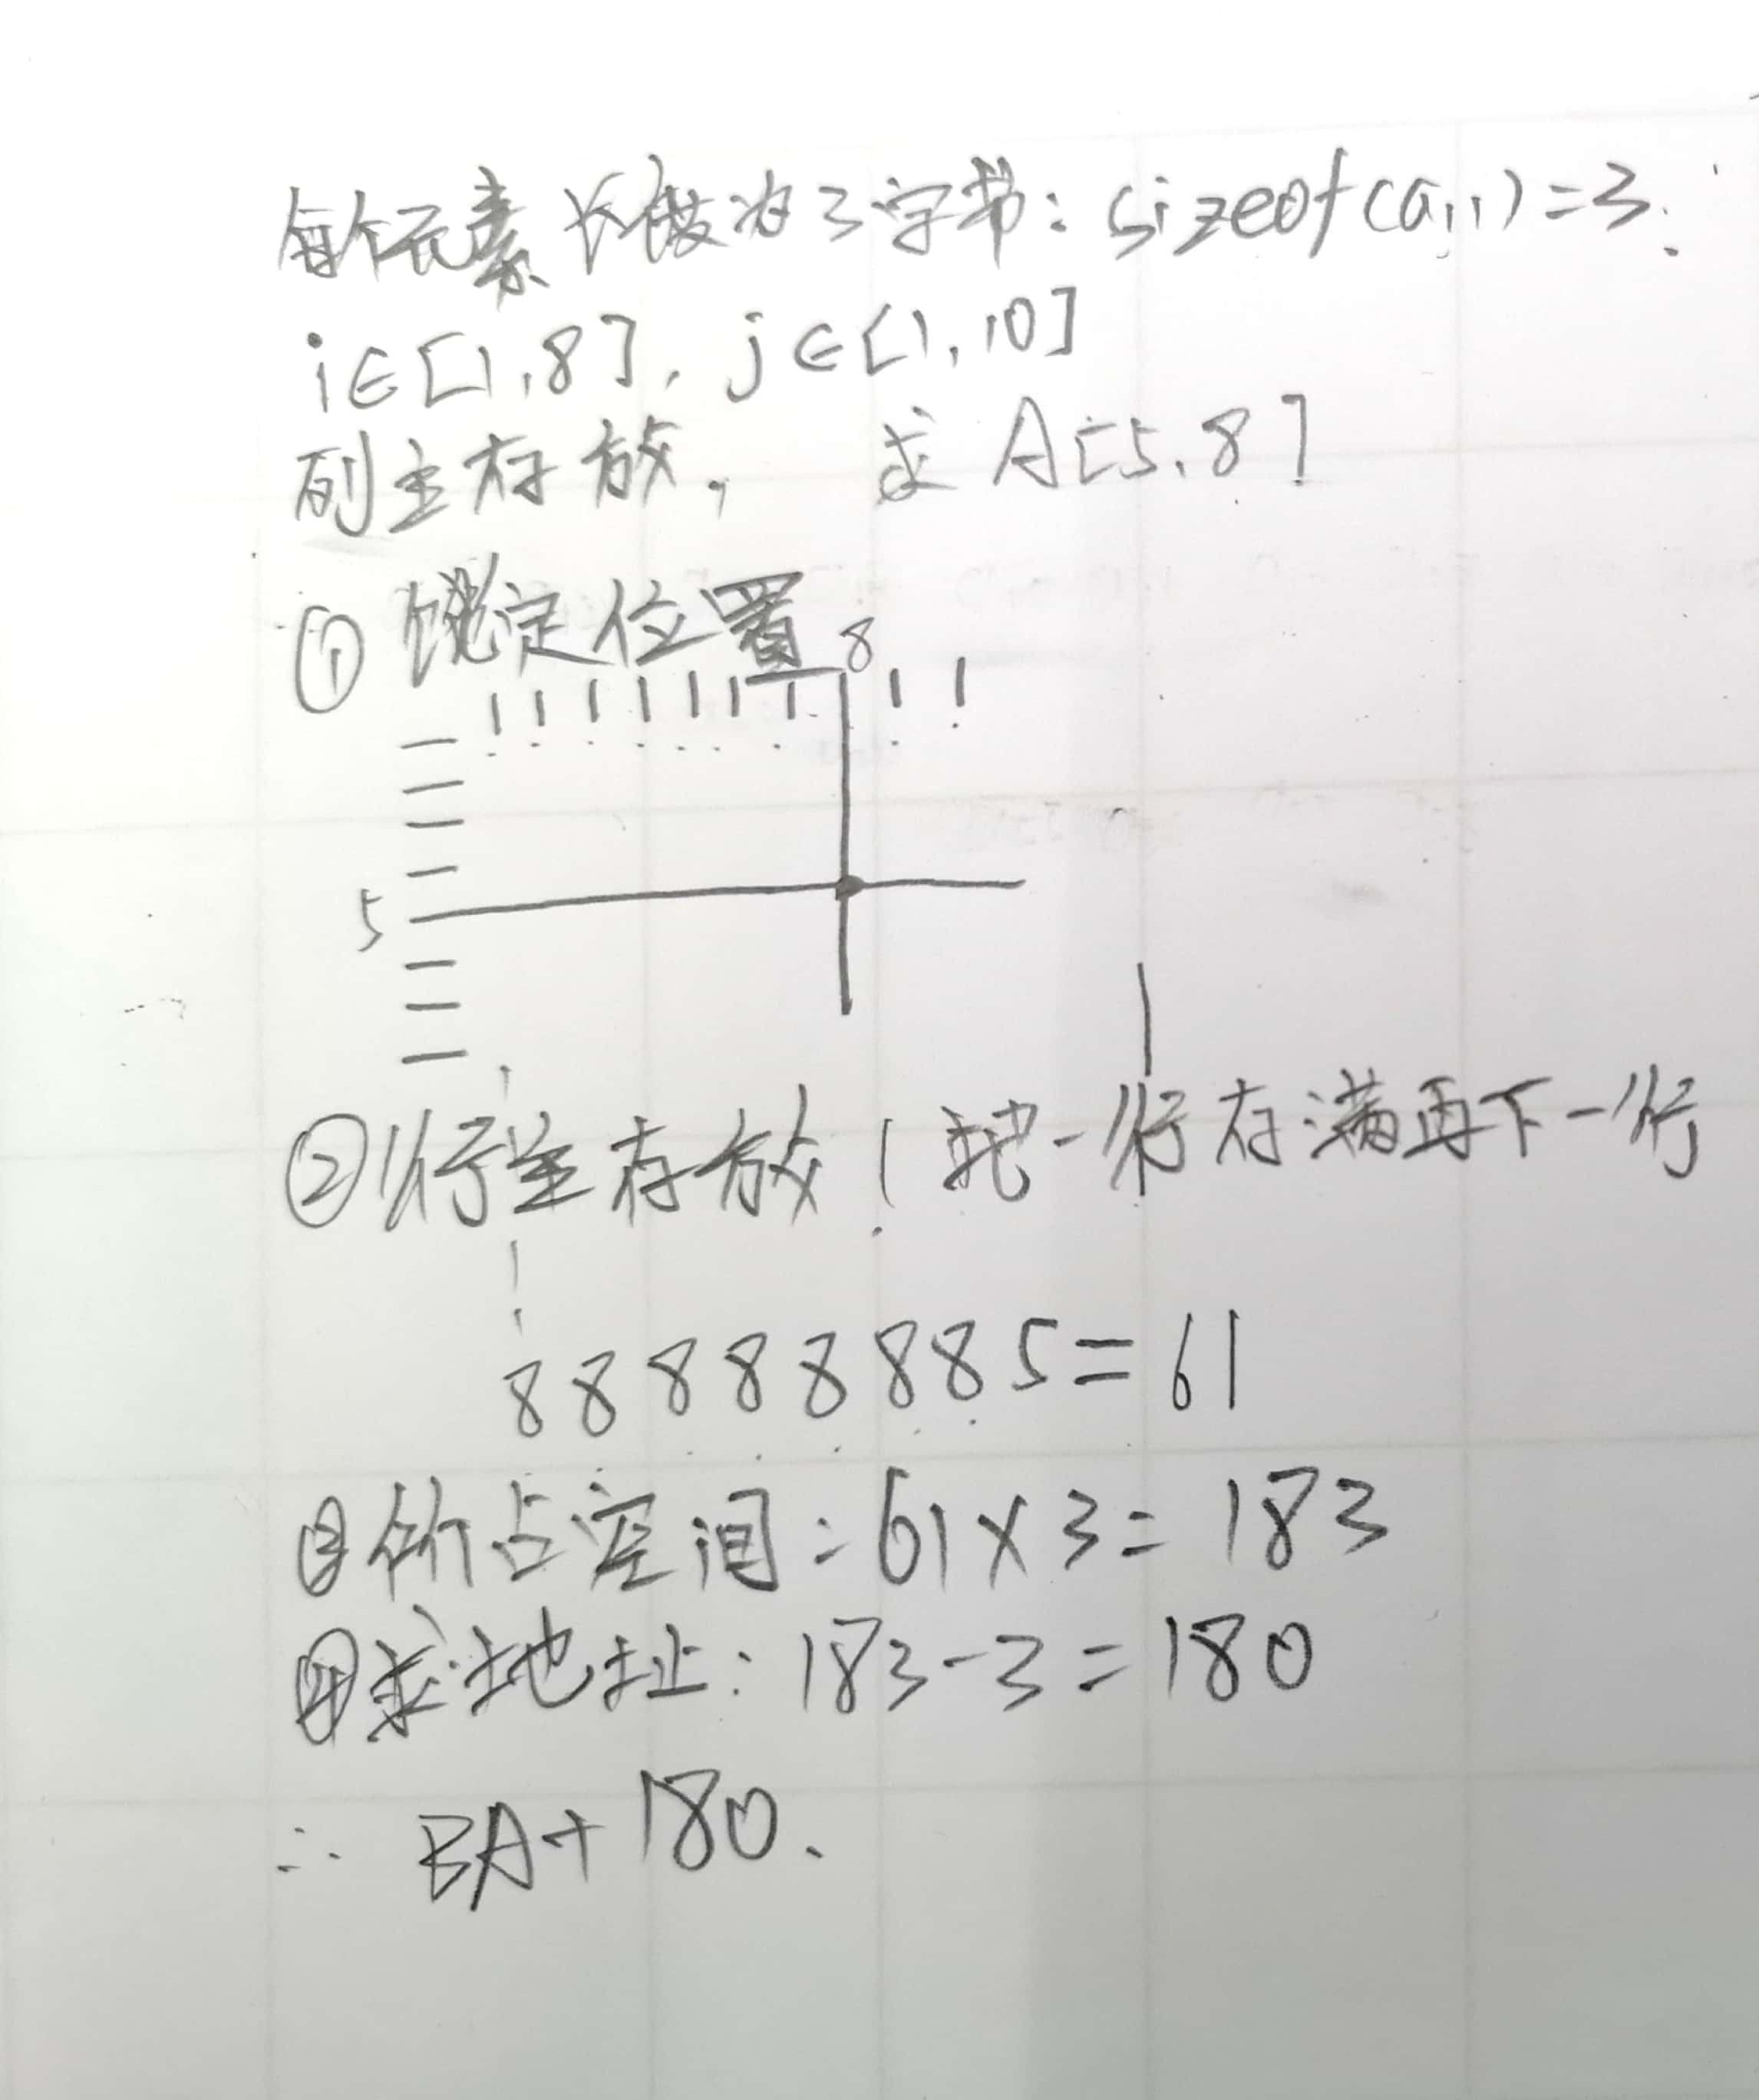 每个元素长度为3字节：sizeof(a₁₁)=3.
i∈[1,8], j∈[1,10]
列主存放, 求A[5,8]
① 锁定位置
8
5
② 行主存放！把一行存满再下一行
8 8 8 8 8 8 8 5=61
③ 所占空间：61×3=183
④ 求地址：183-3=180
∴ BA+180.